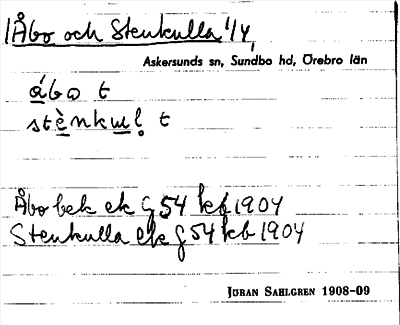 Åbo och Stenkulla 1/4,
Askersunds sn, Sundbo hd, Örebro län
ábo t
stènkul t
Åbo bek ek G 54 kb 1904
Stenkulla ek G 54 kb 1904
JÖRAN SAHLGREN 1908-09